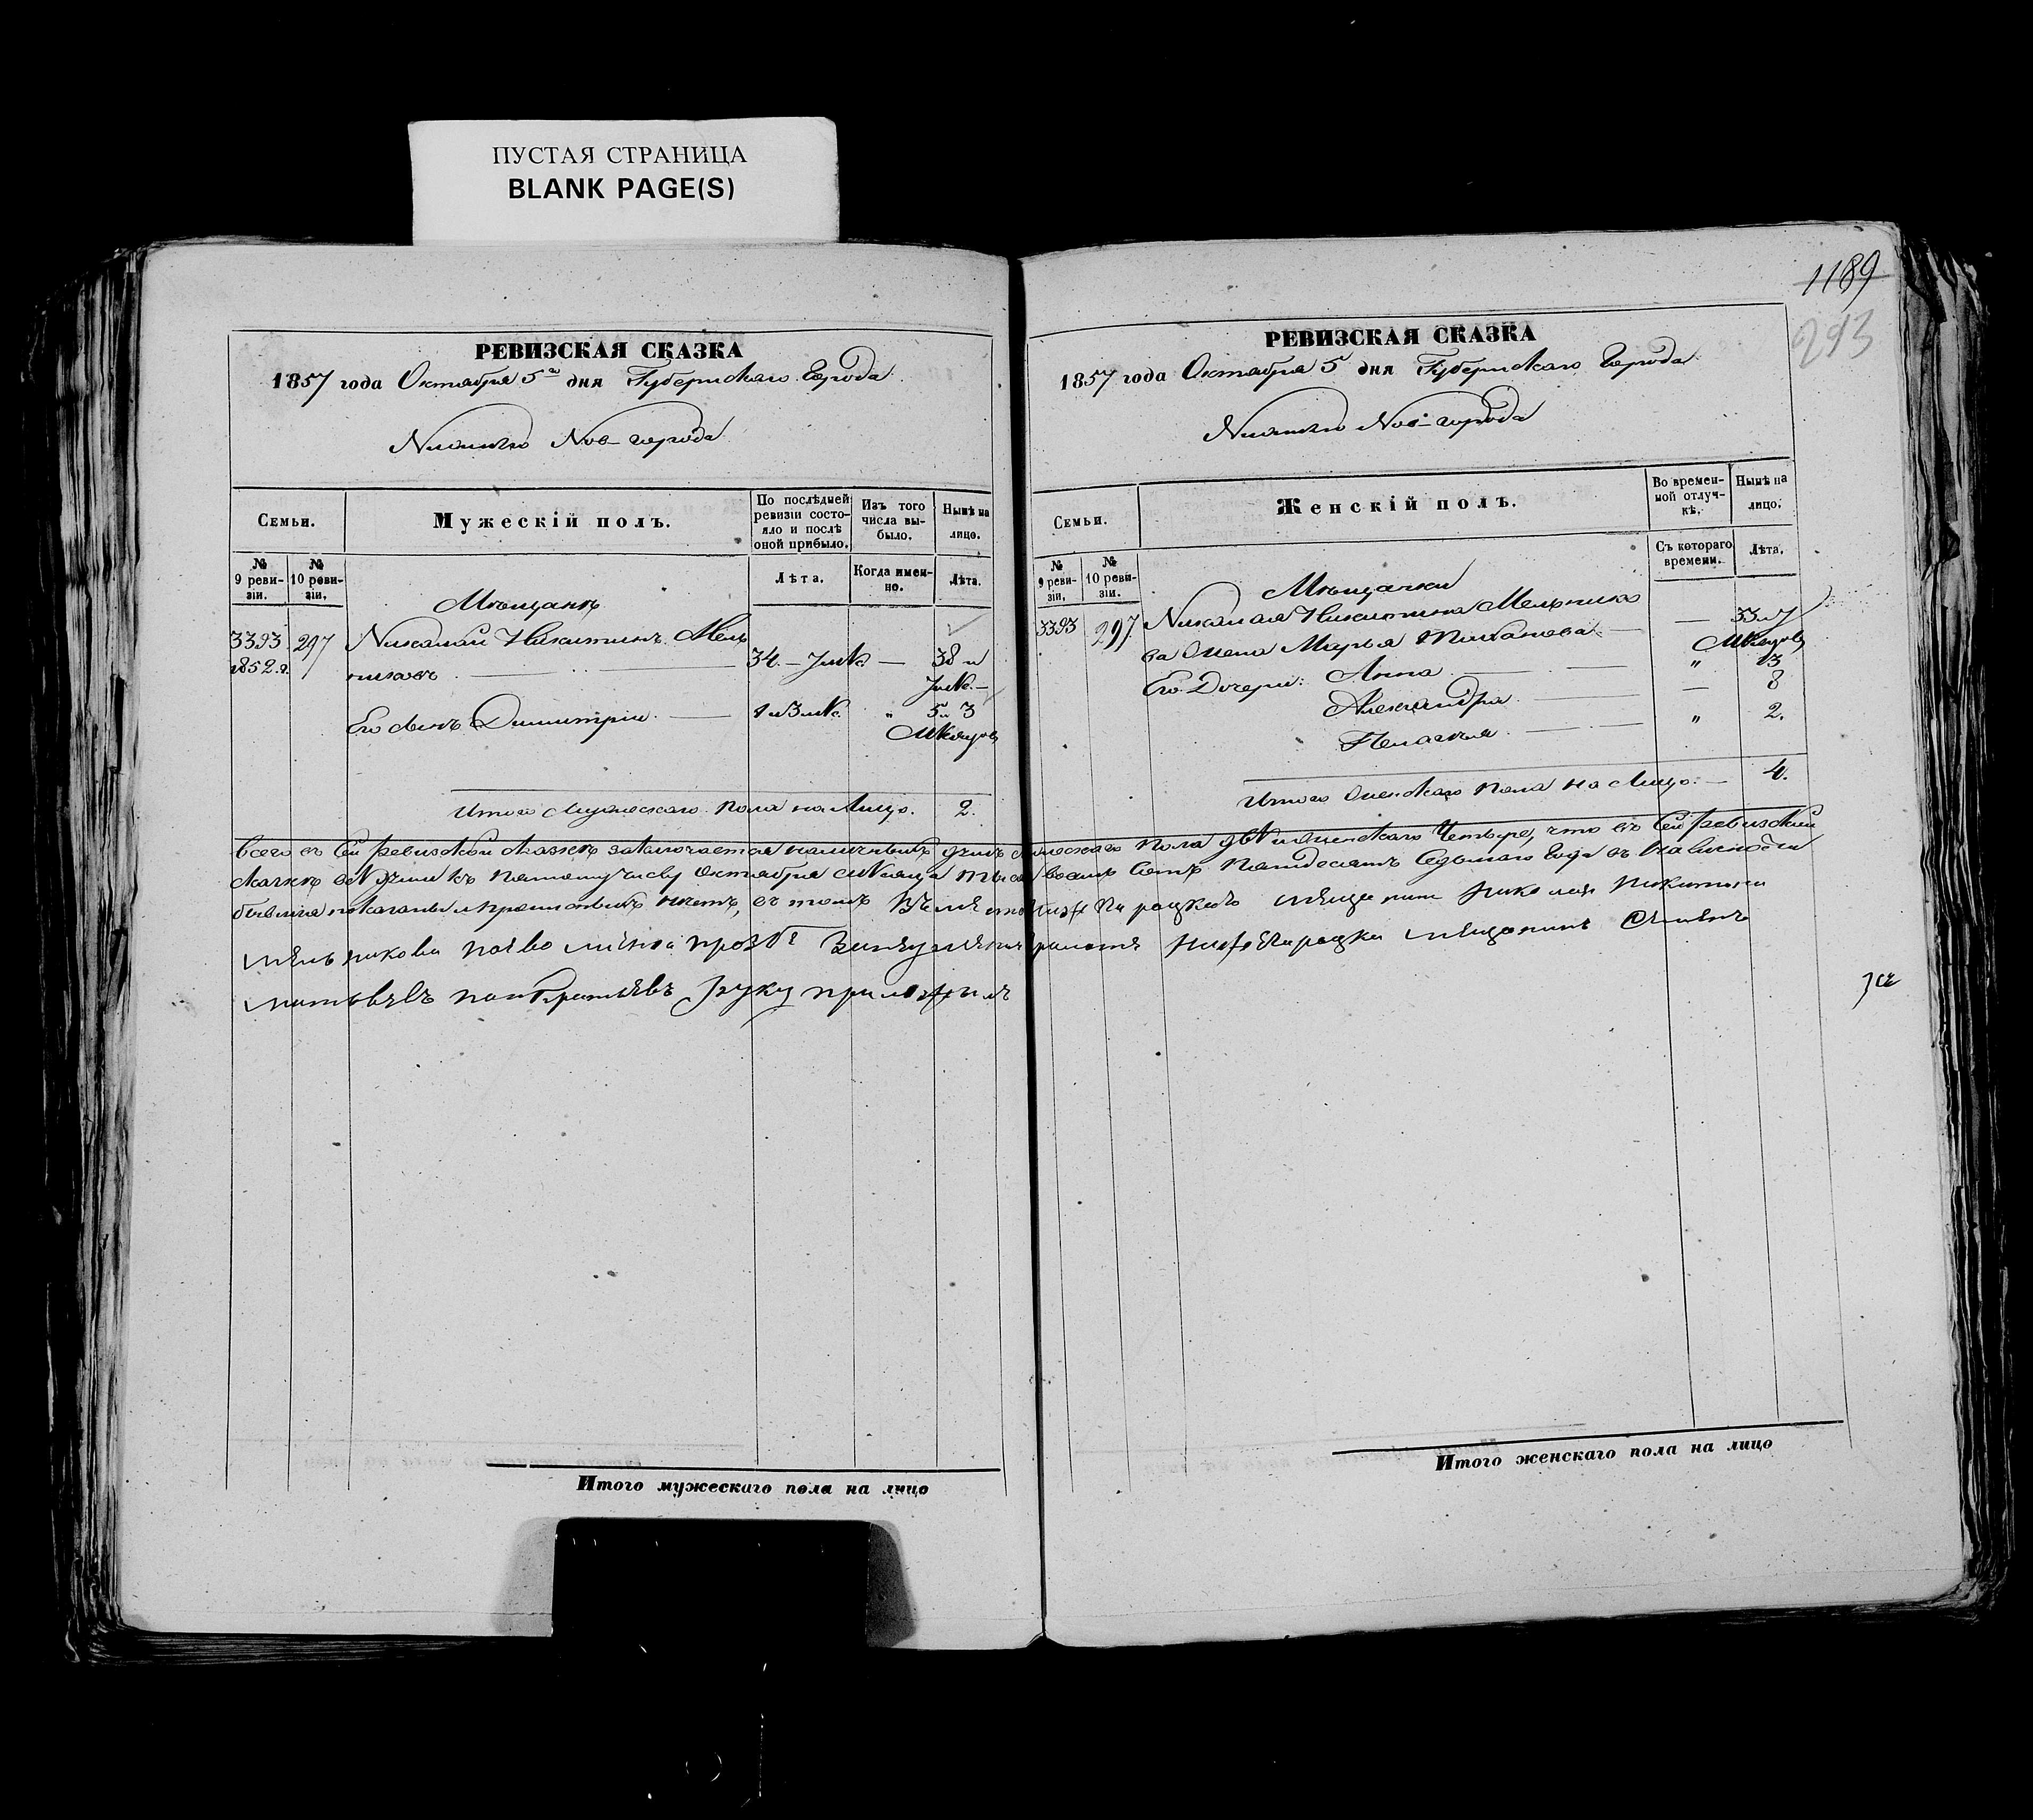 ПУСТАЯ СТРАНИЦА
BLANK PAGE(S)
РЕВИЗСКАЯ СКАЗКА
1857 года Октября 5го дня Губернскаго Города
Нижняго Нов-города
Семьи.
Мужескій полъ.
По послѣдней ревизіи состояло и послѣ оной прибыло.
Изъ того числа выбыло.
Нынѣ на лицо.
№ 9 ревизіи.
№ 10 ревизіи.
Лѣта.
Когда именно.
Лѣта.
Мѣщанъ
3393 297 Николай Никитинъ Мель
1852.г. никовъ 34.-7мѣс. — 38 и
7мѣс.
Его сынъ Димитрій. — 1 и 3 мѣс. " 5 и 3
мѣсяцовъ
Итого мужескаго пола на лицо. 2.
1189
293
РЕВИЗСКАЯ СКАЗКА
1857 года Октября 5 дня Губернскаго Города
Нижняго Нов-города
Семьи.
Женскій полъ.
Во временной отлучкѣ.
Нынѣ на лицо.
№ 9 ревизіи.
№ 10 ревизіи.
Съ котораго времени.
Лѣта.
Мѣщанки
3393 297. Николая Никитина Мельнико
ва жена Марья — 33 и 7
мѣсяцовъ
Его Дочери: Анна — " 13
Александра — 8
Пелагея — " 2.
Итого женскаго пола на лицо. — 4.
Всего въ сей ревизской сказкѣ заключается наличныхъ душъ мужескаго пола двѣ и женскаго четыре, что въ сей ревизской
сказкѣ всѣ души къ пятому числу Октября мѣсяца восемь сотъ пятдесятъ седьмаго года въ наличности
бывшія показаны и прописныхъ нѣтъ, въ томъ мещенин николаи никитин
мельникови проз мещанинъ
руку приложилъ
Итого мужескаго пола на лицо
Итого женскаго пола на лицо